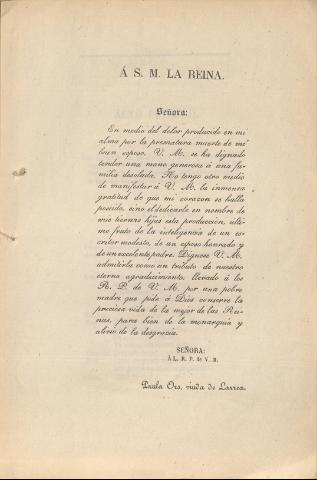 Á S. M. LA REINA.
Señora:
En medio del dolor producido en mi
alma por la prematura muerte de mi
buen esposo, V. M. se ha dignado
tender una mano generosa á una fa-
milia desolada. No tengo otro medio
de manifestar á V. M. la inmensa
gratitud de que mi corazon se halla
poseido, sino el dedicarle en nombre de
mis tiernos hijos esta produccion, últi-
mo fruto de la inteligencia de un es-
critor modesto, de un esposo honrado y
de un excelente padre. Dígnese V. M.
admitirla como un tributo de nuestro
eterno agradecimiento, llevado á los
R. P. de V. M. por una pobre
madre que pide á Dios conserve la
preciosa vida de la mejor de las Rei-
nas, para bien de la monarquía y
alivio de la desgracia.
SEÑORA:
Á L. R. P. de V. M.
Paula Ors, viuda de Larrea.